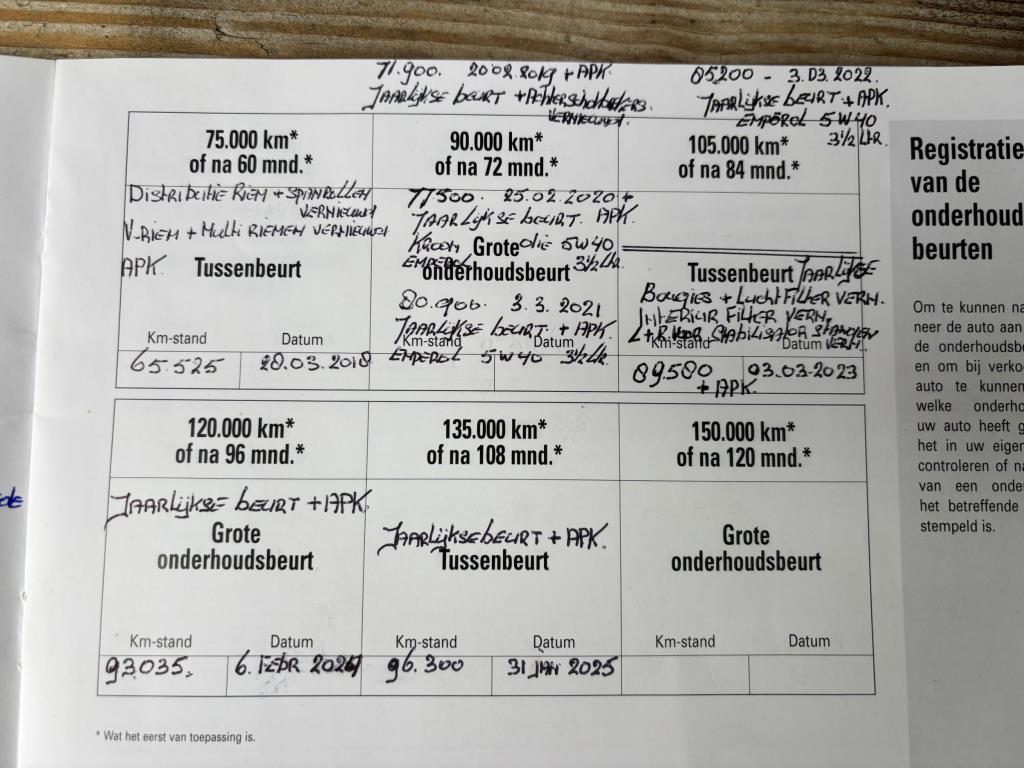 71.900. 20.02.2019 + APK.
JAARLIJKSE BEURT + ACHTERSCHOKBREKERS.
VERNIEUWT.
85200 - 3.03.2022.
JAARLIJKSE BEURT + APK.
EMPEROL 5W40
3½ Ltr.
75.000 km*
of na 60 mnd.*
DISTRIBUTIE RIEM + SPANROLLEN
VERNIEUWT
V-RIEM + Multi RIEMEN VERNIEUWT
APK
Tussenbeurt
Km-stand Datum
65.525 28.03.2018
90.000 km*
of na 72 mnd.*
77500. 25.02.2020 +
JAARLIJKSE BEURT. APK.
KROON olie 5W40
Grote
EMPEROL 3½ Ltr.
onderhoudsbeurt
80.900. 3.3.2021
JAARLIJKSE BEURT. + APK
Km-stand Datum
EMPEROL 5W40 3½ Ltr
105.000 km*
of na 84 mnd.*
Tussenbeurt JAARLIJKSE
BOUGIES + LUCHTFILTER VERN.
INTERIUR FILTER VERN,
L+R VOOR STABILISATOR STANGEN
VERN.
Km-stand Datum
89580 03-03-2023
+ APK.
120.000 km*
of na 96 mnd.*
JAARLIJKSE BEURT + APK
Grote
onderhoudsbeurt
Km-stand Datum
93.035. 6. FEBR 2024
135.000 km*
of na 108 mnd.*
JAARLIJKSE BEURT + APK.
Tussenbeurt
Km-stand Datum
96.300 31 JAN 2025
150.000 km*
of na 120 mnd.*
Grote
onderhoudsbeurt
Km-stand Datum
* Wat het eerst van toepassing is.
Registratie
van de
onderhoud
beurten
Om te kunnen na
neer de auto aan
de onderhoudsbe
en om bij verko
auto te kunnen
welke onderho
uw auto heeft g
het in uw eigen
controleren of na
van een onder
het betreffende
stempeld is.